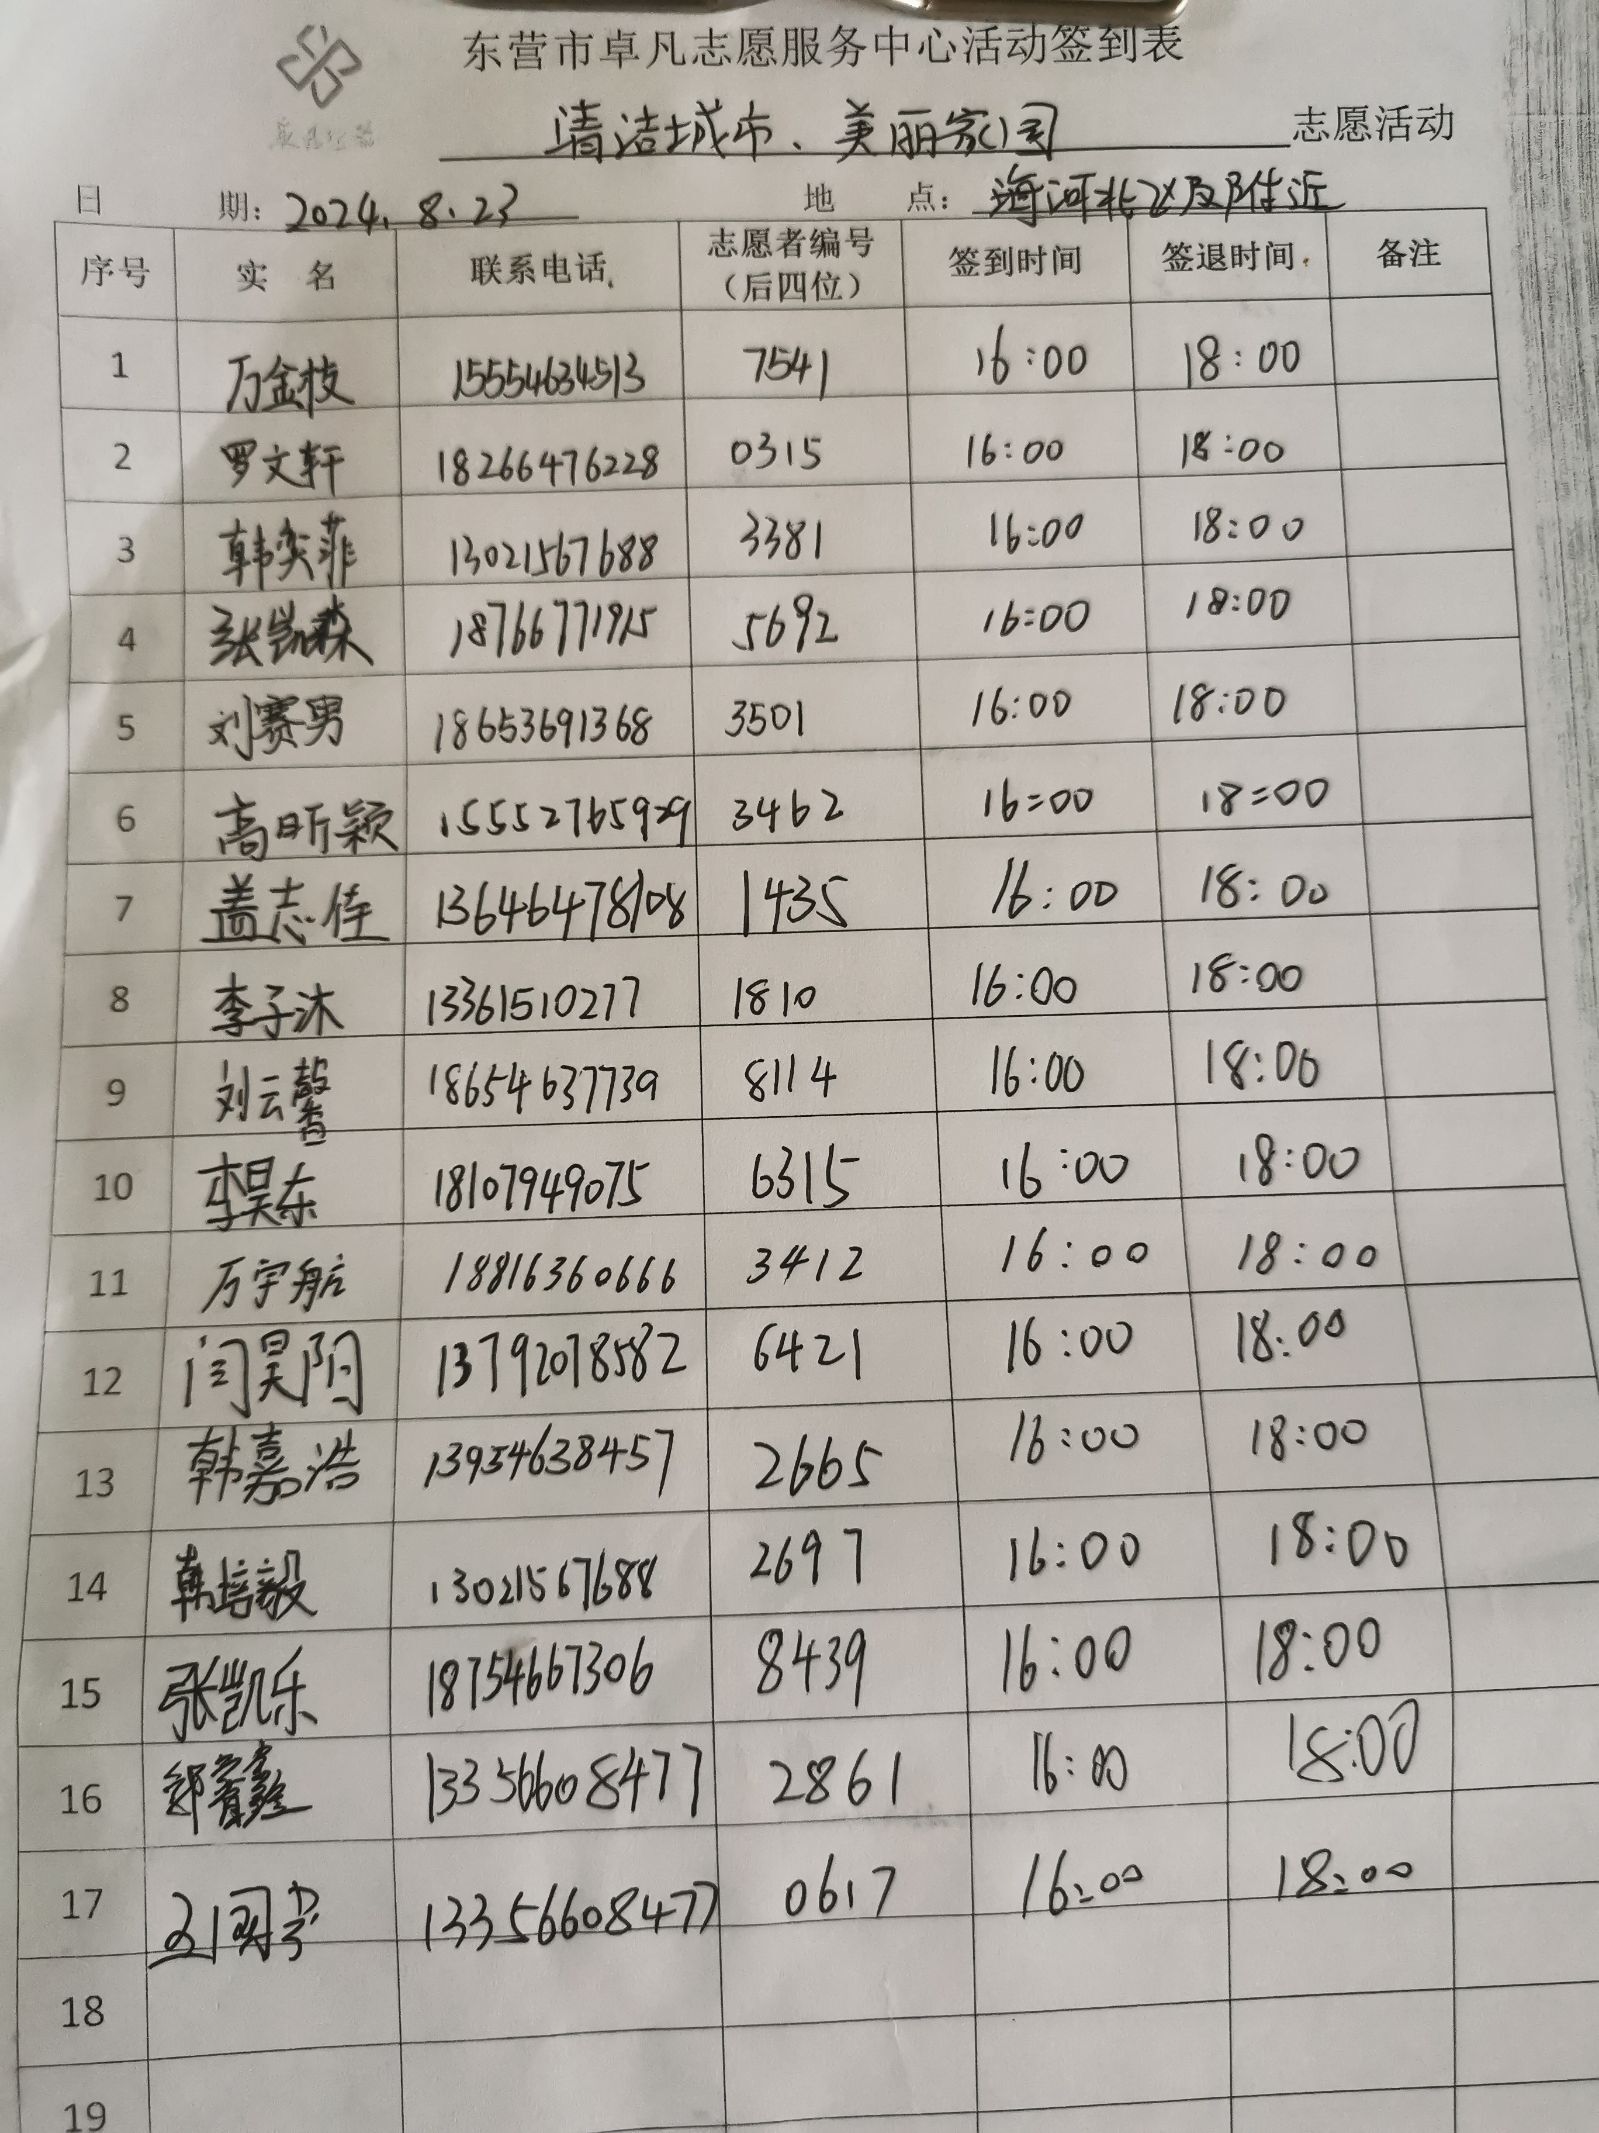 东营市卓凡志愿服务中心活动签到表
清洁城市、美丽家园 志愿活动
日 期: 2024.8.23 地 点: 海河北区及附近
序号 实 名 联系电话 志愿者编号（后四位） 签到时间 签退时间 备注
1 万金枝 15554634513 7541 16:00 18:00
2 罗文轩 18266476228 0315 16:00 18:00
3 韩奕菲 13021567688 3381 16:00 18:00
4 张凯森 18766771915 5692 16:00 18:00
5 刘赛男 18653691368 3501 16:00 18:00
6 高昕颖 15552765929 3462 16:00 18:00
7 盖志佳 13646478108 1435 16:00 18:00
8 李子沐 13361510277 1810 16:00 18:00
9 刘云馨 18654637739 8114 16:00 18:00
10 李昊东 18107949075 6315 16:00 18:00
11 万宇航 18816360666 3412 16:00 18:00
12 闫昊阳 13792078582 6421 16:00 18:00
13 韩嘉浩 13954638457 2665 16:00 18:00
14 韩培毅 13021567688 2697 16:00 18:00
15 张凯乐 18754667306 8439 16:00 18:00
16 13356608477 2861 16:00 18:00
17 13356608477 0617 16:00 18:00
18
19